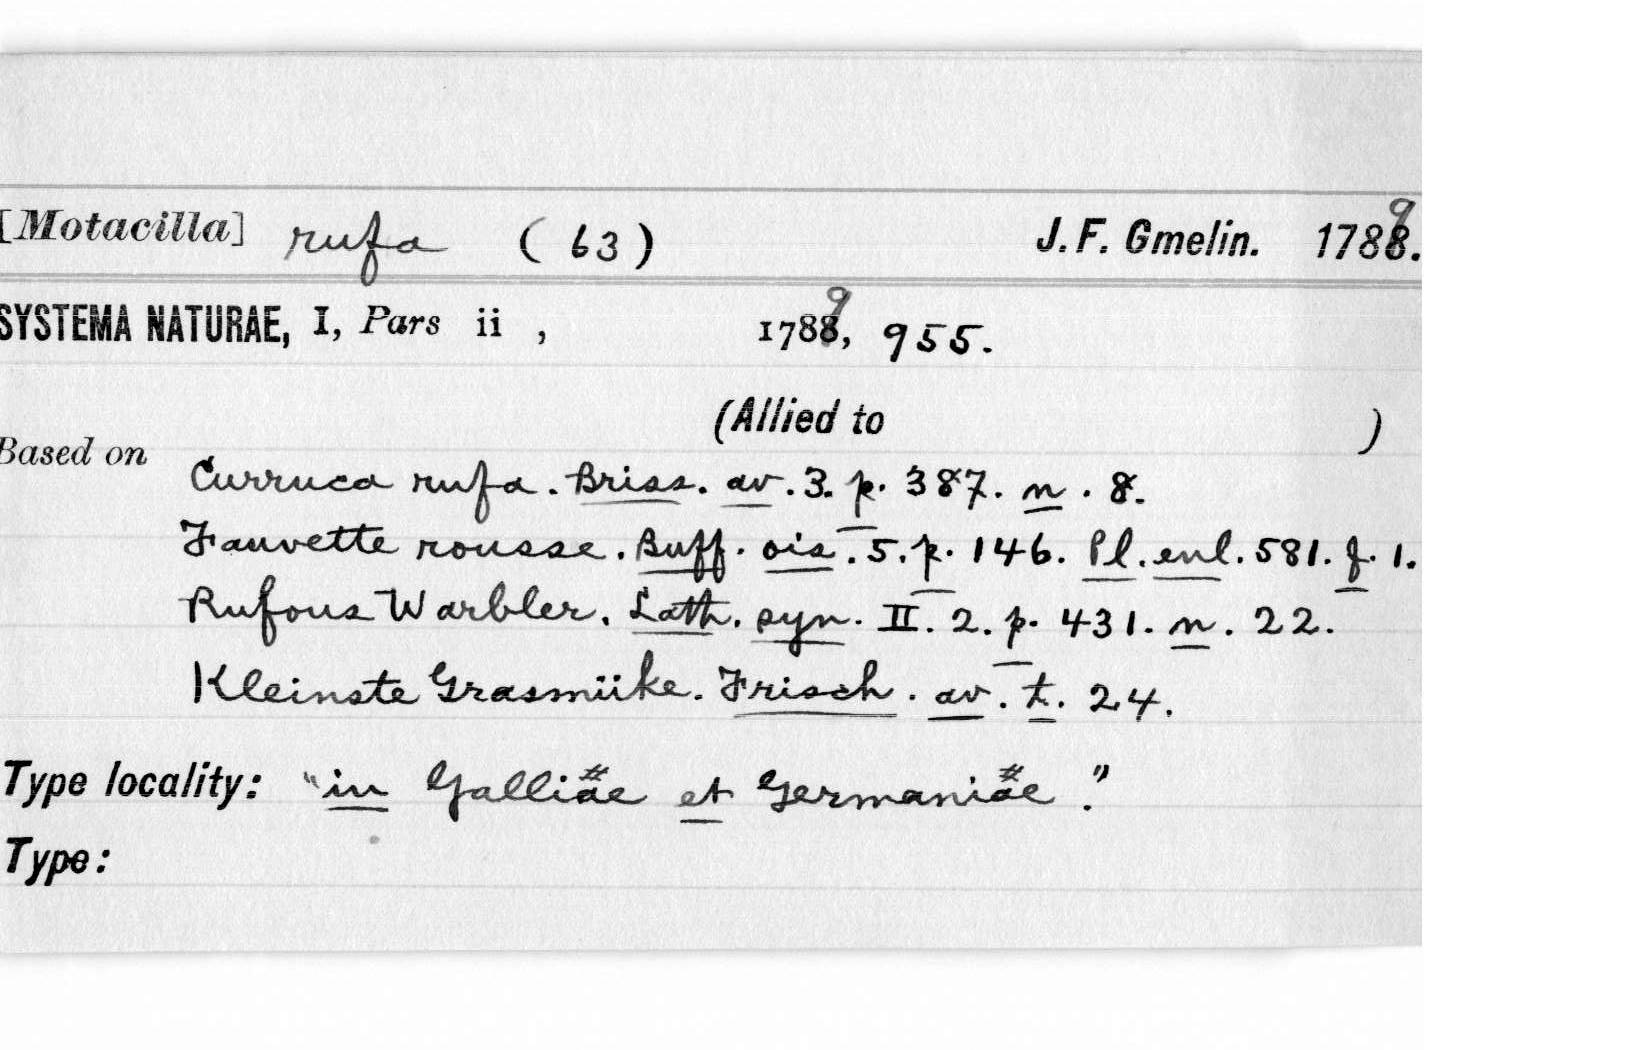 [Motacilla] rufa (63) J. F. Gmelin. 1789.
SYSTEMA NATURAE, I, Pars ii , 1789, 955.
(Allied to )
Based on
Curruca rufa. Briss. av. 3. p. 387. n. 8.
Fauvette rousse. Buff. ois. 5. p. 146. Pl. enl. 581. f. 1.
Rufous Warbler. Lath. syn. II. 2. p. 431. n. 22.
Kleinste Grasmüke. Frisch. av. t. 24.
Type locality: "in Galliae et Germaniae."
Type: